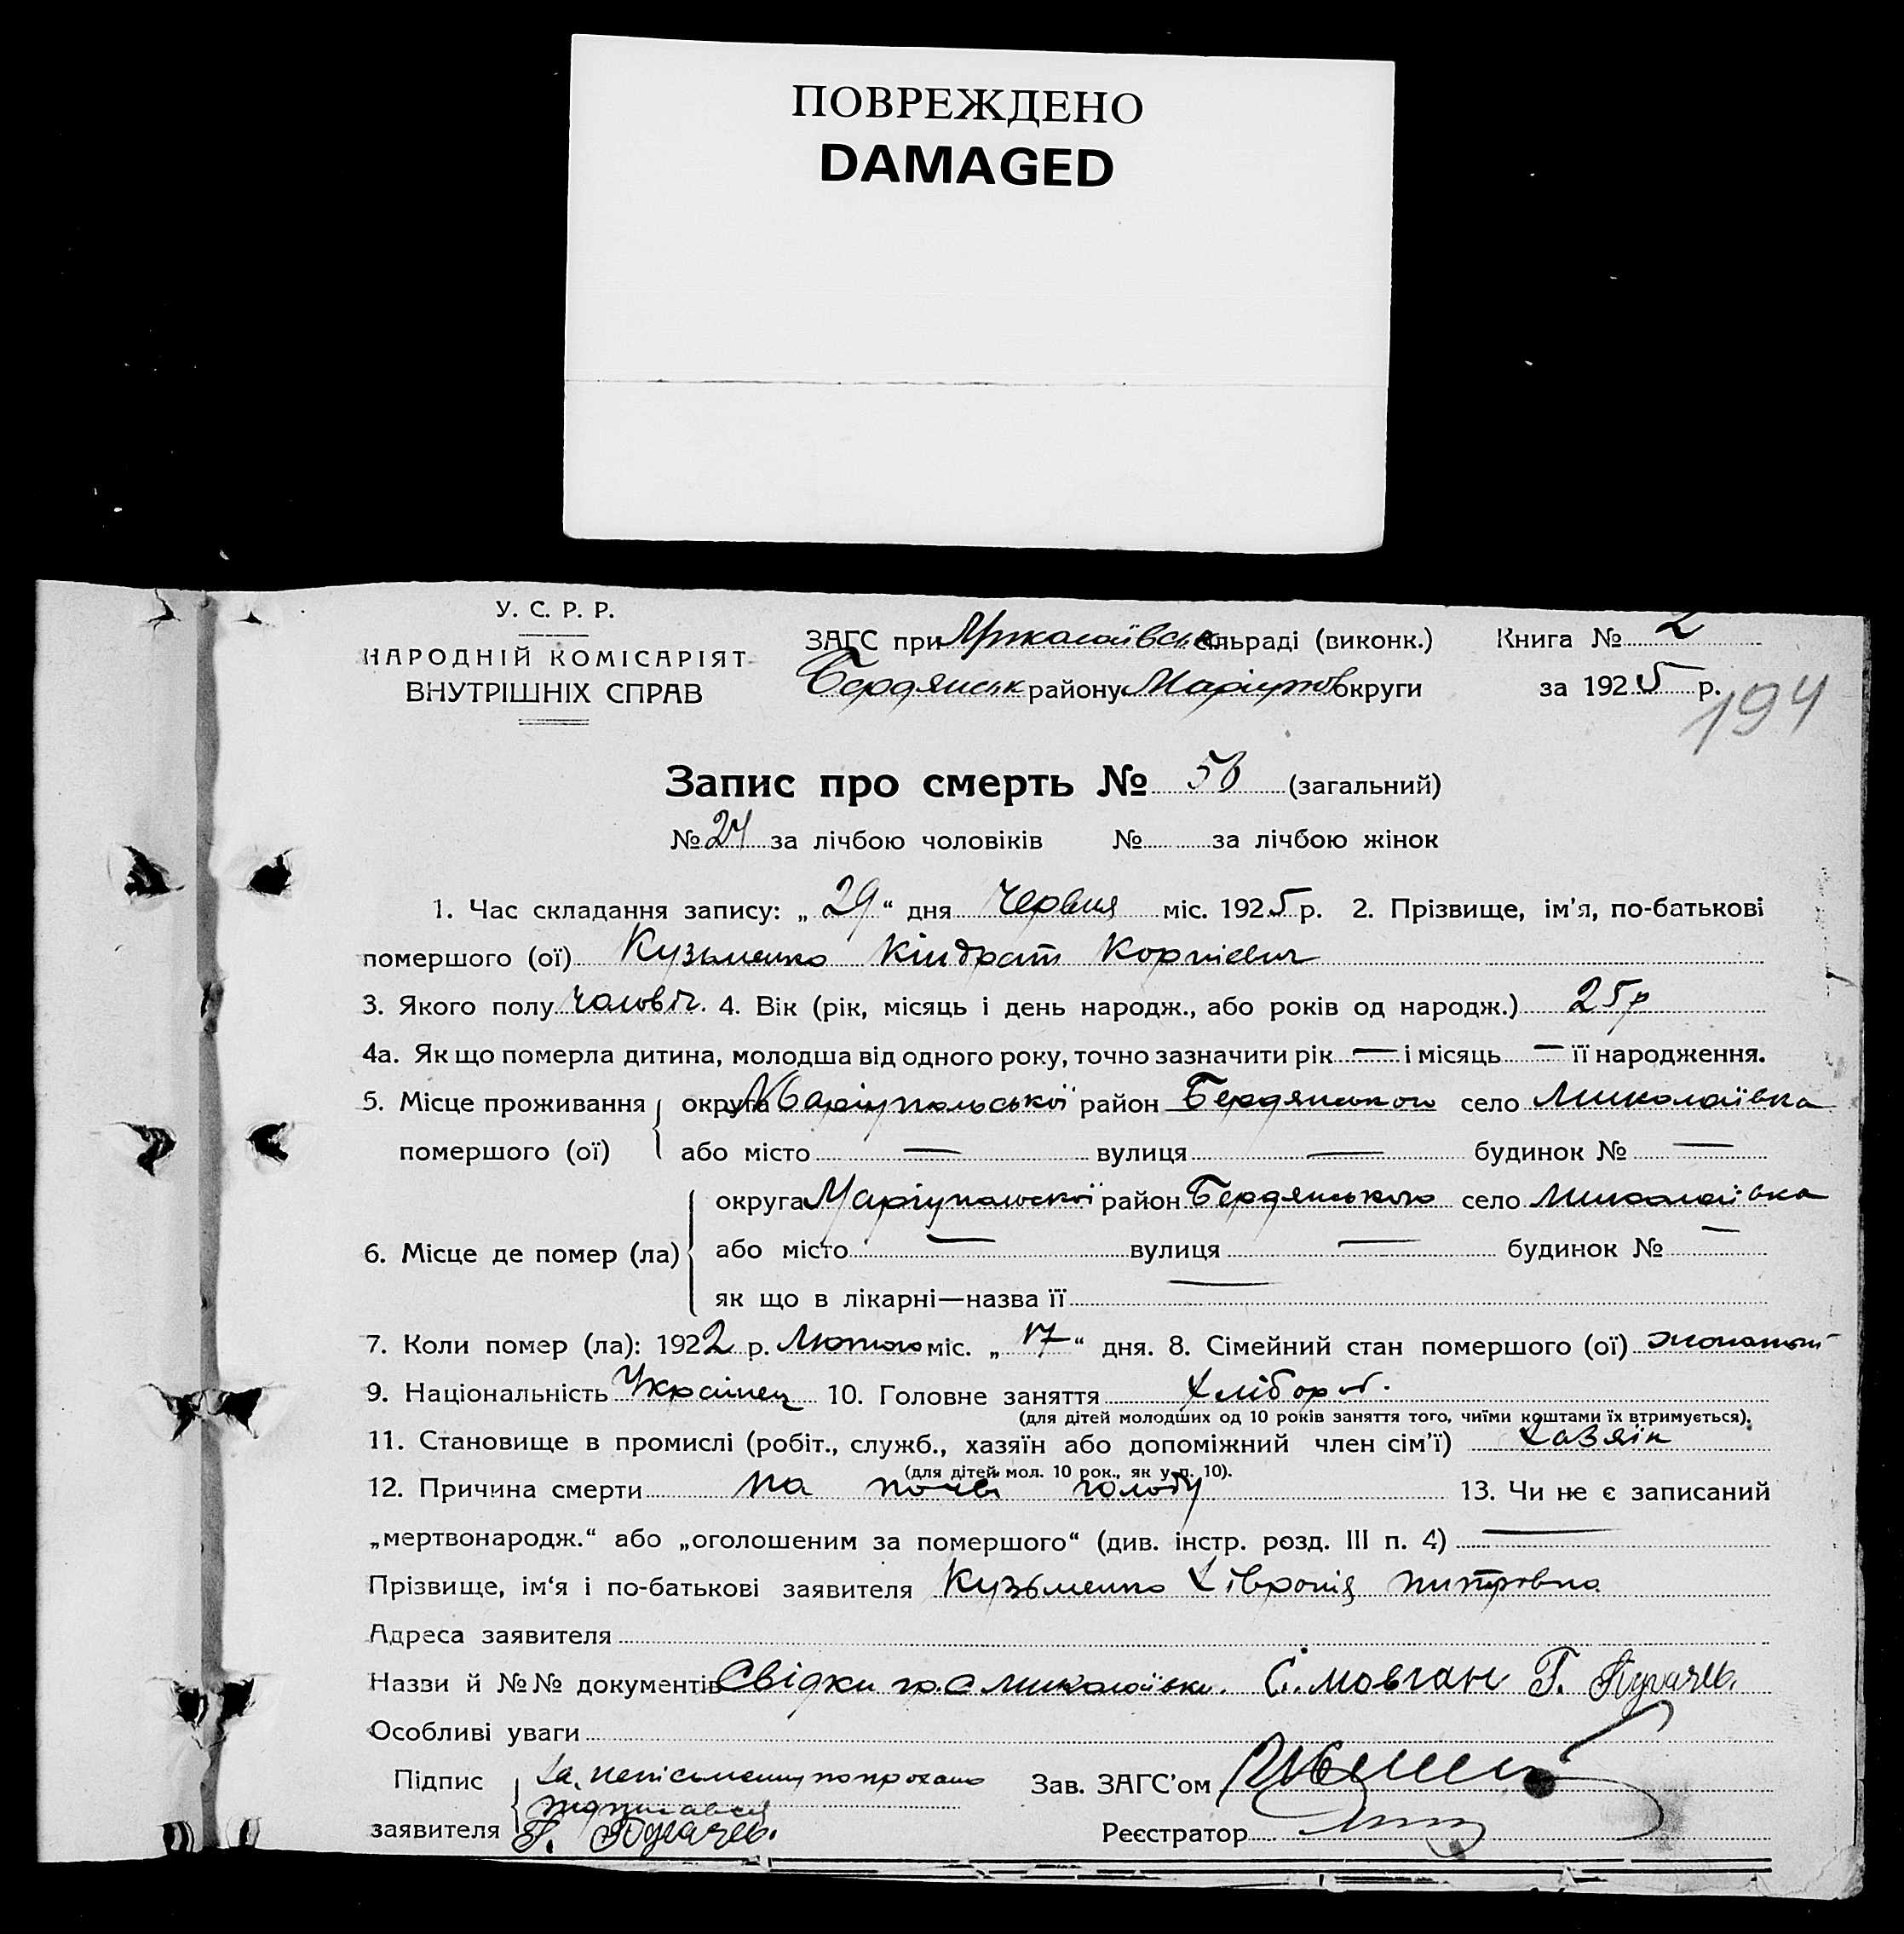 ПОВРЕЖДЕНО
DAMAGED
У. С. Р. Р.
НАРОДНІЙ КОМІСАРІЯТ
ВНУТРІШНІХ СПРАВ
ЗАГС при Миколаївськ сільраді (виконк.) Книга № 2
Бердянськ району Маріупов округи за 1925 р.
194
Запис про смерть № 56 (загальний)
№ 24 за лічбою чоловіків № за лічбою жінок
1. Час складання запису: „ 29 “ дня Червня міс. 1925 р. 2. Прізвище, ім'я, по-батькові
помершого (ої) Кузьменко Кіндрат Корнієвич
3. Якого полу чоловіч. 4. Вік (рік, місяць і день народж., або років од народж.) 25 р
4а. Як що померла дитина, молодша від одного року, точно зазначити рік — і місяць — її народження.
5. Місце проживання округа Маріупольської район Бердянського село Миколаївка
помершого (ої) або місто — вулиця — будинок № —
округа Маріупольскої район Бердянського село Миколаївка
6. Місце де помер (ла) або місто — вулиця — будинок № —
як що в лікарні—назва її —
7. Коли помер (ла): 1922 р. Лютого міс. „ 17 “ дня. 8. Сімейний стан помершого (ої) жонатий
9. Національність Українец 10. Головне заняття хлібороб.
(для дітей молодших од 10 років заняття того, чиїми коштами їх втримується).
11. Становище в промислі (робіт., служб., хазяїн або допоміжний член сім'ї) хазяін
(для дітей мол. 10 рок., як у п. 10).
12. Причина смерти на почві голоду 13. Чи не є записаний
„мертвонародж.“ або „оголошеним за помершого“ (див. інстр. розд. III п. 4) —
Прізвище, ім'я і по-батькові заявителя Кузьменко Хівронія питровна
Адреса заявителя
Назви й №№ документів Свідки гр. с Миколаївки. С. Мовчан Г. Пугачев.
Особливі уваги
Підпис За неписьменну по проханю Зав. ЗАГС'ом
підписався
заявителя Г. Пугачев. Реєстратор